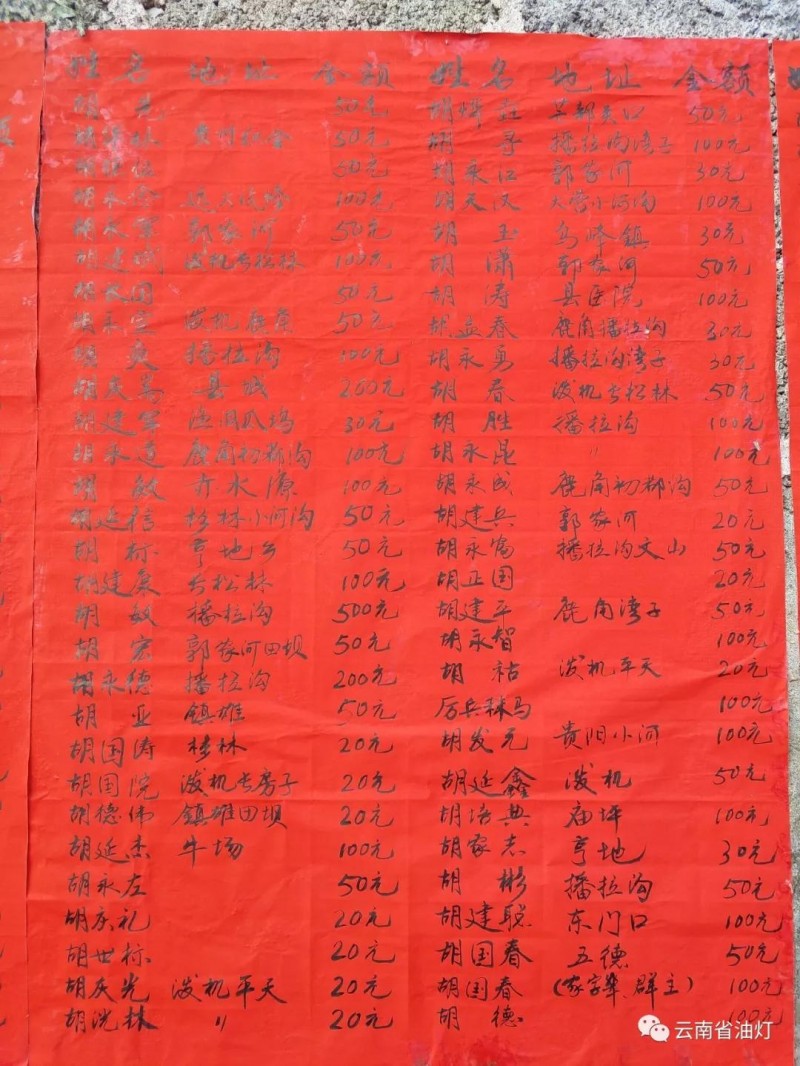 姓名 地址 金额 姓名 地址 金额
胡 50元
胡 50元
胡 50元
胡永 100元
胡永军 郭家河 50元
胡建 泼机长松林 100元
胡 国 50元
胡永宝 泼机鹿角 50元
胡爽 播拉沟 100元
胡庆嵩 县城 200元
胡建军 30元
胡永道 鹿角初都沟 100元
胡敏 赤水源 100元
胡延信 杉林小河沟 50元
胡标 亨地乡 50元
胡建康 长松林 100元
胡敏 播拉沟 500元
胡宏 郭家河田坝 50元
胡永德 播拉沟 200元
胡亚 镇雄 50元
胡国涛 杉林 20元
胡国院 泼机长房子 20元
胡德伟 镇雄田坝 20元
胡延杰 牛场 100元
胡永左 50元
胡庆礼 20元
胡世标 20元
胡庆光 泼机平天 20元
胡洗林 〃 20元
胡 50元
胡寻 播拉沟湾子 100元
胡永江 郭家河 30元
胡天汉 大营小河沟 100元
胡玉 乌峰镇 30元
胡潇 郭家河 50元
胡涛 县医院 100元
胡益春 鹿角播拉沟 30元
胡永勇 播拉沟湾子 30元
胡春 泼机长松林 50元
胡胜 播拉沟 100元
胡永昆 〃 100元
胡永成 鹿角初都沟 50元
胡建兵 郭家河 20元
胡永富 播拉沟文山 50元
胡正国 20元
胡建平 鹿角湾子 50元
胡永智 100元
胡祜 泼机平天 20元
厉兵秣马 100元
胡发元 贵阳小河 100元
胡延鑫 泼机 50元
胡涛典 庙坪 100元
胡家志 亨地 30元
胡彬 播拉沟 50元
胡建聪 东门口 100元
胡国春 五德 50元
胡国春 (家字辈群主) 100元
胡德 100元
云南省油灯